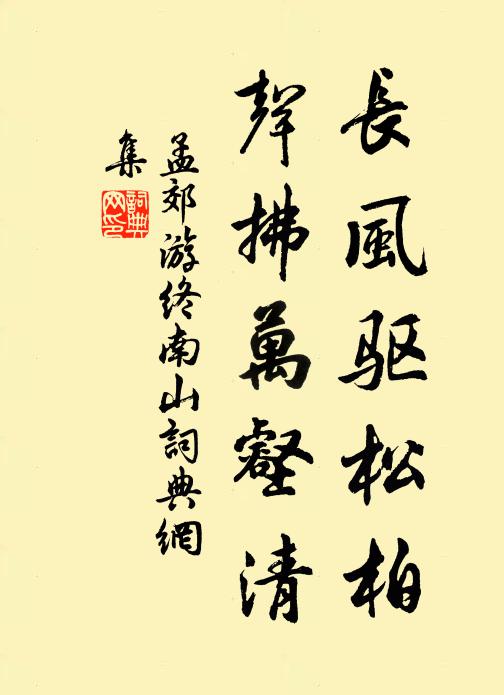 長風驱松柏
聲拂萬壑清
孟郊游终南山詞典網
集
詞典
网印